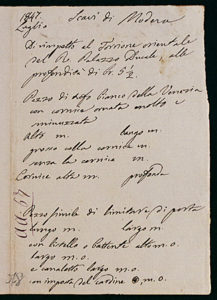 1847 Scavi di Modena
Luglio
Di rimpetto al Torrione orientale
del R. Palazzo Ducale, alla
profondità di Br. 5½
Pezzo di tufo bianco della
con cornice ornata molto e
minuzzata
Alto m. largo m.
grosso colla cornice m.
senza la cornice m.
Cornice alta m. profonda
Pezzo simile di limitare di porta
lungo m. largo m.
con listello o battente alto m. 0.
largo m. 0.
e canaletti largo m. 0.
con imposta del cardine m. 0.